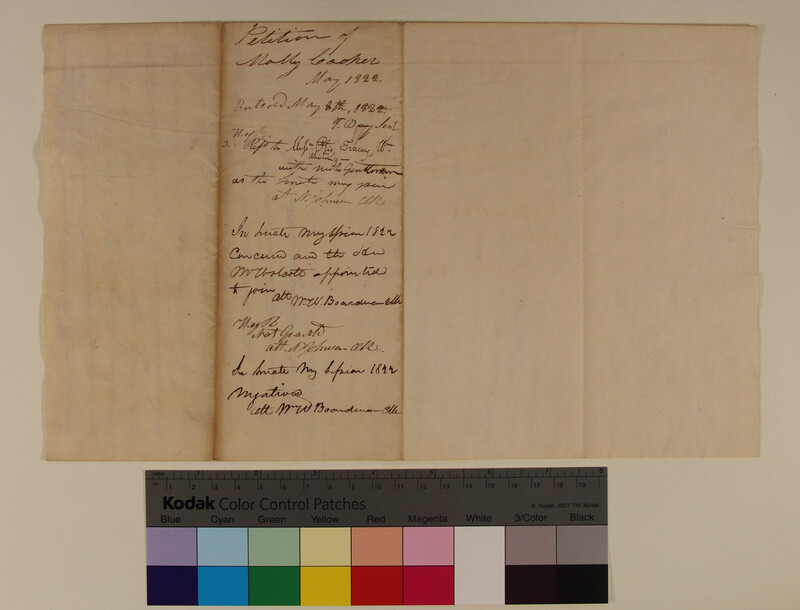 Petition of
Molly Cooper
May 1822
Entered May 8th, 1822.
T. Day Sec'y
H. of
Ref'd to Mess'rs Tracy, Wm
with such Gentlemen
as the Senate may join
att N. Johnson Clk
In Senate May Session 1822
Concurred and the Hon
Mr Wolcott appointed
to join att Wm W Boardman Clk
Not Granted
att. N. Johnson Clk.
In Senate May Session 1822
Negatived
att Wm W Boardman Clk
inches 1 2 3 4 5 6 7 8
cm 1 2 3 4 5 6 7 8 9 10 11 12 13 14 15 16 17 18 19
Kodak Color Control Patches
© Kodak, 2007 TM: Kodak
Blue Cyan Green Yellow Red Magenta White 3/Color Black